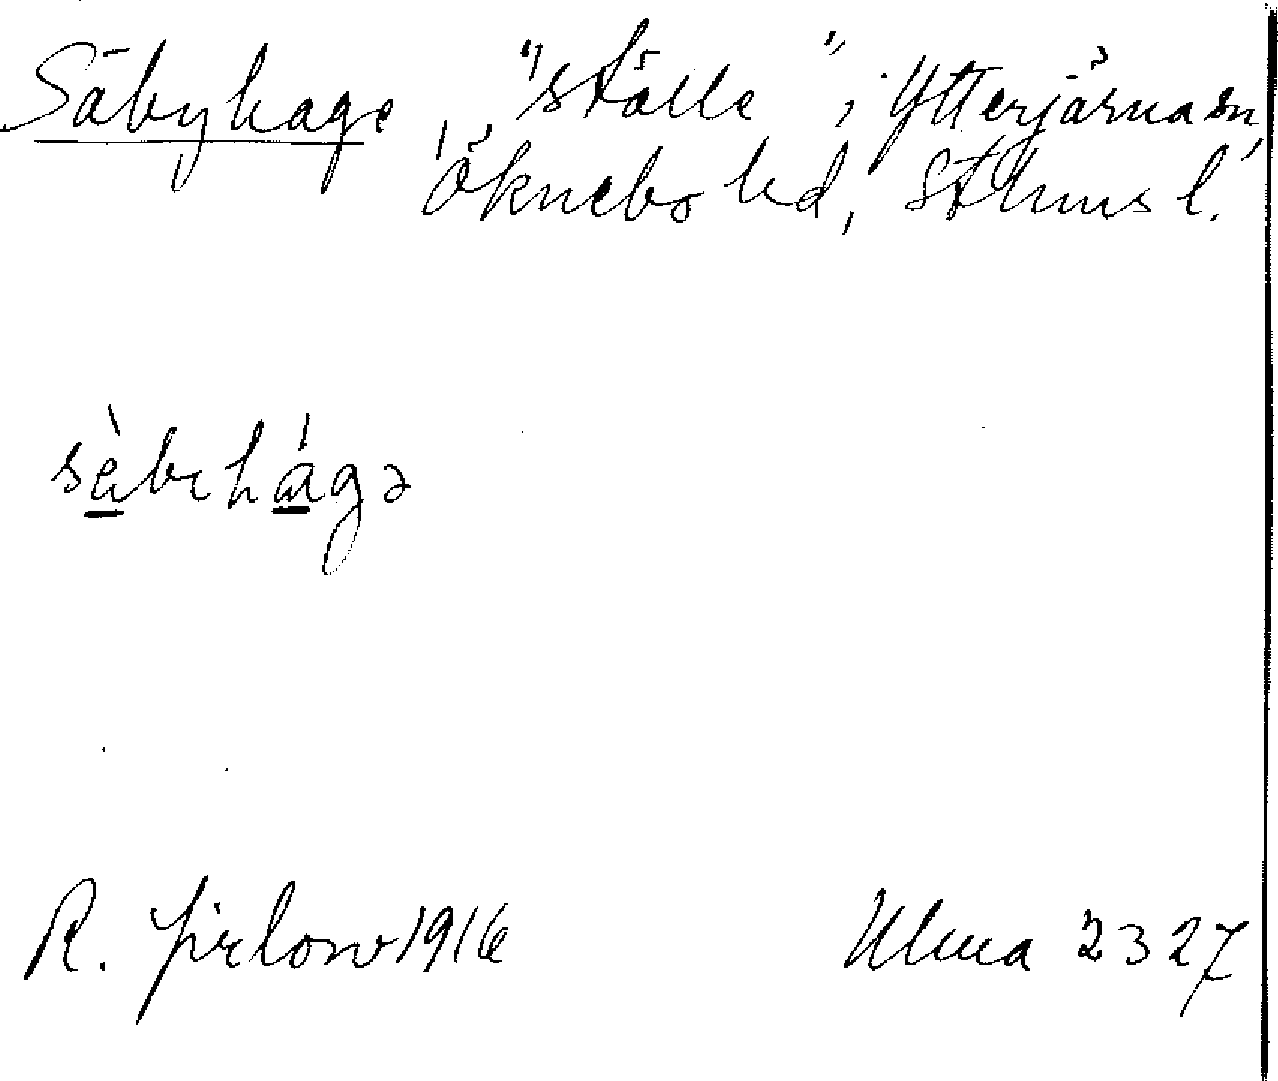 Säbyhage "ställe", Ytterjärna sn,
Öknebo hd, Sthms l.
sä̀bɩhágə
R. Jirlow 1916 Ulma 2327